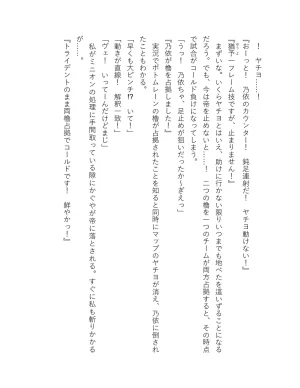 ！　ヤチヨ……！
『おーっと！　乃依のカウンター！　鈍足連射だ！　ヤチヨ動けない！』
『猶予一フレーム技ですが、止まりません！』
まずいな。いくらヤチヨとはいえ、助けに行かない限りいつまでも地べたを這いずることになる
だろう。でも、今は帝を止めないと……！　二つの櫓を一つのチームが両方占拠すると、その時点
で試合がコールド負けになってしまう。
「うっ！　乃依ちゃ、足止めが狙いだったか～ぎえっ」
『乃依が櫓を占拠しました！』
実況でボトムレーンの櫓が占拠されたことを知ると同時にマップのヤチヨが消え、乃依に倒され
たこともわかる。
「早くも大ピンチ⁉　いて！」
「動きが直線！　解釈一致！」
「ヴェ！　いってーんだけどまじ」
私がミニオンの処理に手間取っている隙にかぐやが帝に落とされる。すぐに私も斬りかかる
『トライデントのまま両櫓占拠でコールドです！　鮮やかっ！』